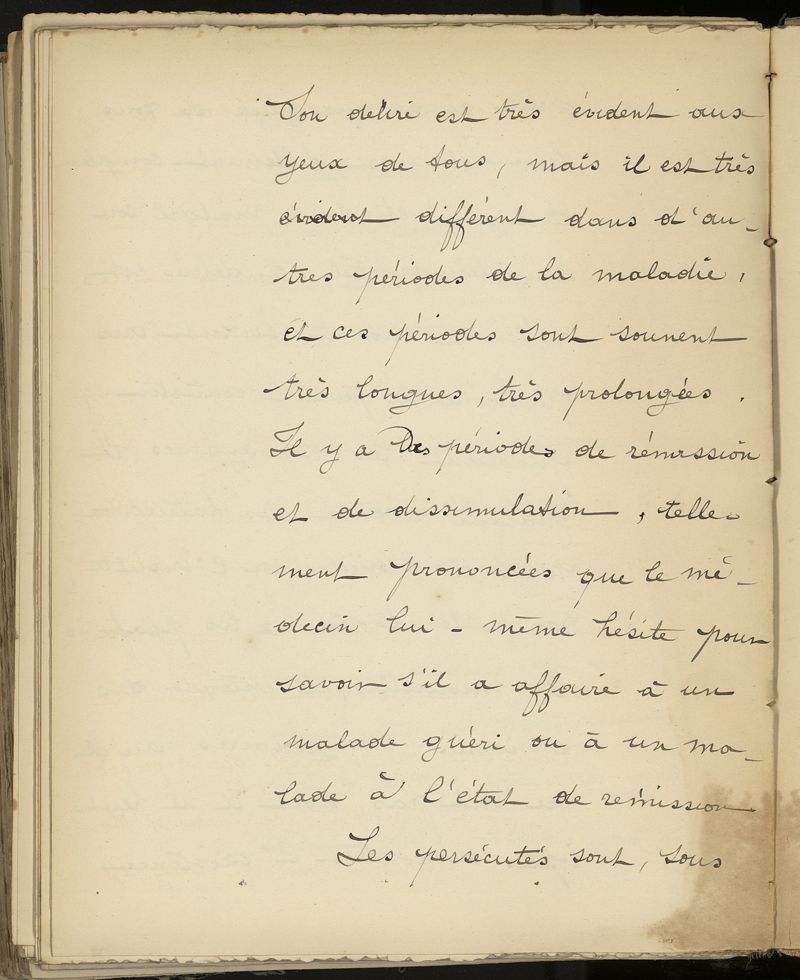 Son délire est très évident aux
yeux de tous, mais il est très
évident différent dans d'au-
tres périodes de la maladie,
et ces périodes sont souvent
très longues, très prolongées.
Il y a Des périodes de rémission
et de dissimulation, telle-
ment prononcées que le mé-
decin lui-même hésite pour
savoir s'il a affaire à un
malade guéri ou à un ma-
lade à l'état de rémission
Les persécutés sont, sous